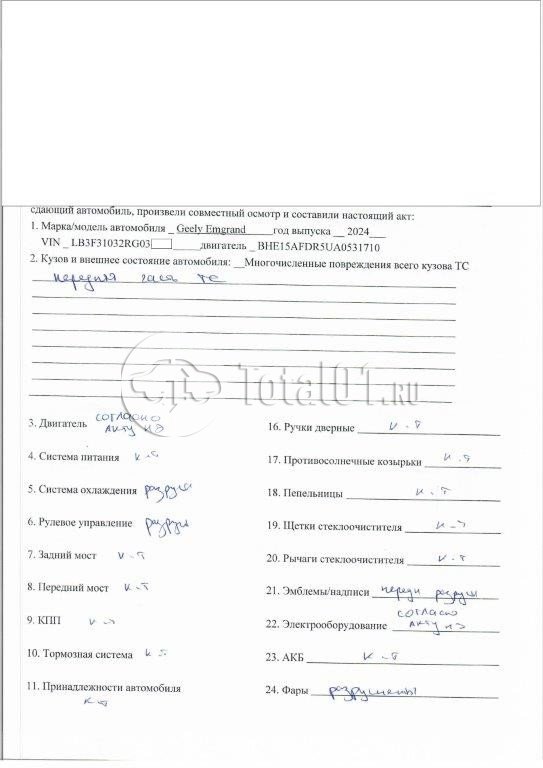 сдающий автомобиль, произвели совместный осмотр и составили настоящий акт:
1. Марка/модель автомобиля _ Geely Emgrand_____год выпуска __ 2024___
VIN _ LB3F31032RG03_____двигатель _ BHE15AFDR5UA0531710
2. Кузов и внешнее состояние автомобиля: __Многочисленные повреждения всего кузова ТС
передняя часть ТС
Total01.RU
3. Двигатель согласно акту НЭ
16. Ручки дверные к-т
4. Система питания к-т
17. Противосолнечные козырьки к-т
5. Система охлаждения разруш
18. Пепельницы к-т
6. Рулевое управление разруш
19. Щетки стеклоочистителя к-т
7. Задний мост к-т
20. Рычаги стеклоочистителя к-т
8. Передний мост к-т
21. Эмблемы/надписи перед разруш
9. КПП к-т
22. Электрооборудование согласно акту НЭ
10. Тормозная система к-т
23. АКБ к-т
11. Принадлежности автомобиля
к-т
24. Фары разрушены